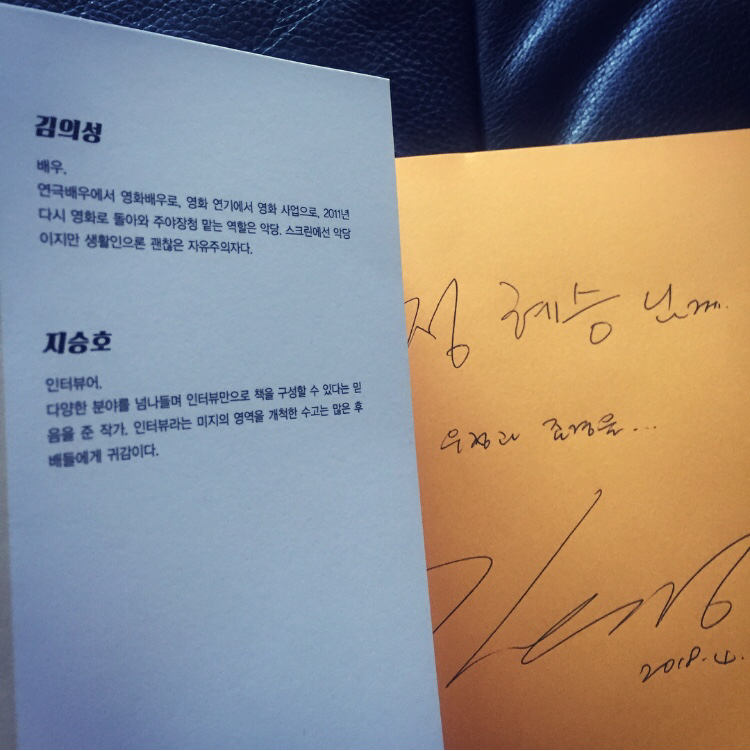 김의성
배우.
연극배우에서 영화배우로, 영화 연기에서 영화 사업으로, 2011년
다시 영화로 돌아와 주야장청 맡는 역할은 악당. 스크린에선 악당
이지만 생활인으론 괜찮은 자유주의자다.
지승호
인터뷰어.
다양한 분야를 넘나들며 인터뷰만으로 책을 구성할 수 있다는 믿
음을 준 작가. 인터뷰라는 미지의 영역을 개척한 수고는 많은 후
배들에게 귀감이다.
정 혜승 님께.
우정과 존경을...
2018. 4.